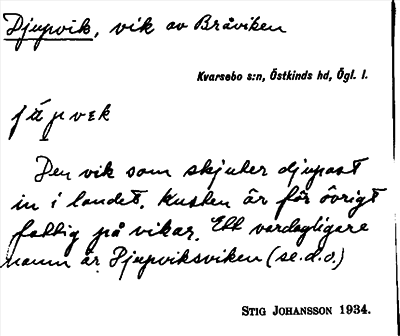 Djupvik, vik av Bråviken
Kvarsebo s:n, Östkinds hd, Ögl. l.
jɯ́pvek
Den vik som skjuter djupast
in i landet. Kusten är för övrigt
fattig på vikar. Ett vardagligare
namn är Djupviksviken (se.d.o.)
STIG JOHANSSON 1934.